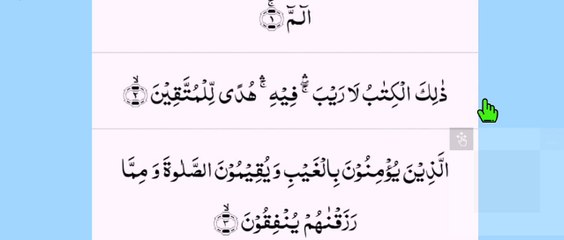 الٓمّٓ ۚ﴿۱﴾
ذٰلِكَ الْكِتٰبُ لَا رَيْبَ ۛۖ فِيْهِ ۛ هُدًى لِّلْمُتَّقِيْنَ ۙ﴿۲﴾
الَّذِيْنَ يُؤْمِنُوْنَ بِالْغَيْبِ وَيُقِيْمُوْنَ الصَّلٰوةَ وَ مِمَّا
رَزَقْنٰهُمْ يُنْفِقُوْنَ ۙ﴿۳﴾